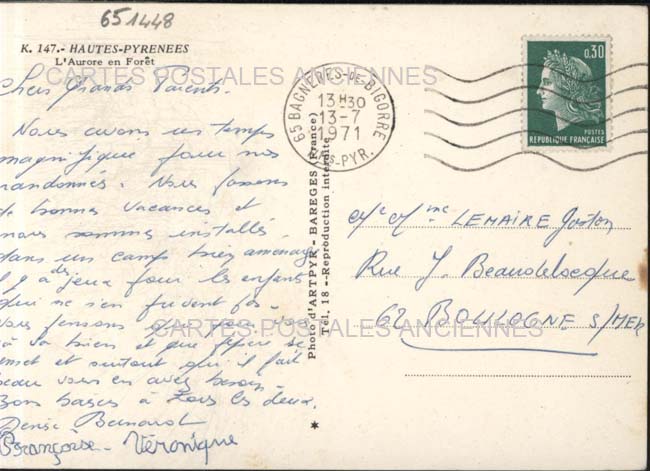 651448
K. 147.- HAUTES-PYRENEES
L'Aurore en Forêt
CARTES POSTALES ANCIENNES
Chers Grands Parents.
Nous avons un temps
magnifique pour nos
randonnées. Nous passons
de bonnes vacances et
nous sommes installés
dans un camp bien aménagé
il y a des jeux pour les enfants
qui ne s'en privent pas.
Nous pensons que
va bien et que se
remet et surtout qu'il fait
beau vous en avez besoin
Bons baisers à tous les deux.
Denise Bernard
Françoise - Véronique
65 BAGNERES-DE-BIGORRE
13H30
13-7
1971
HTES-PYR.
0,30
POSTES
REPUBLIQUE FRANÇAISE
Photo d'ARTPYR - BAREGES (France)
Tél. 18 - Reproduction interdite
Mr Mme LEMAIRE Gaston
Rue J. Beaudelocque
62 BOULOGNE S/MER
CARTES POSTALES ANCIENNES